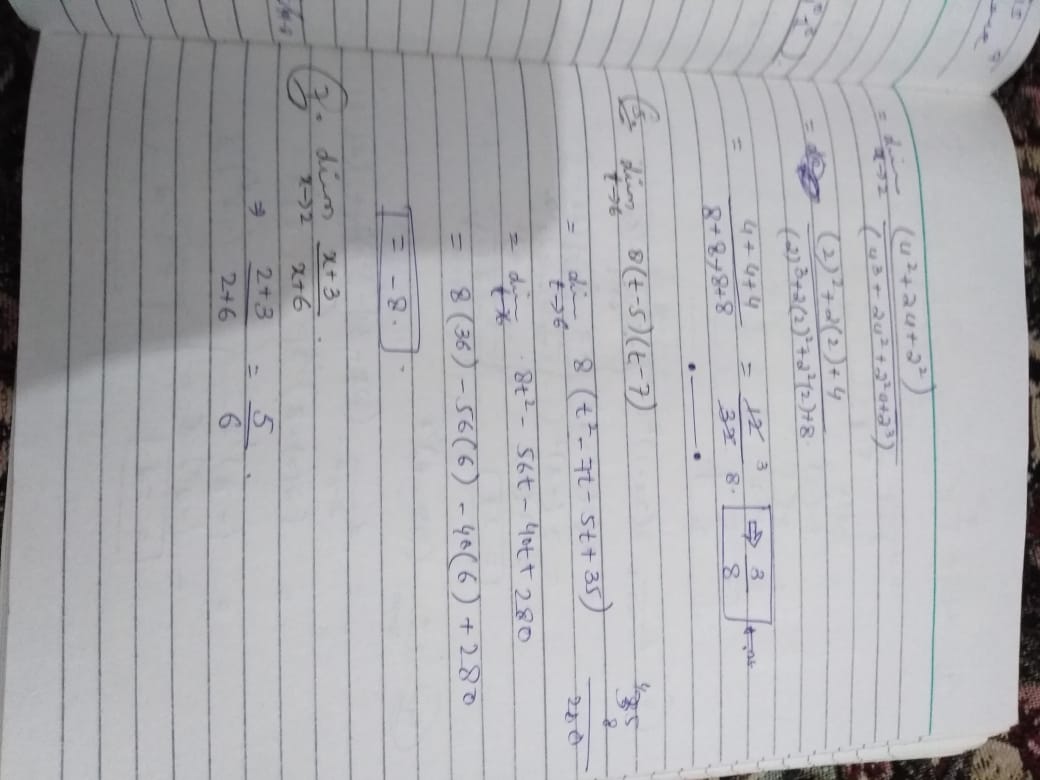 = lim x→2 (u² + 2u + 2²) / (u³ + 2u² + 2²u + 2³)
= (2)² + 2(2) + 4 / (2)³ + 2(2)² + 2²(2) + 8.
= 4 + 4 + 4 / 8 + 8 + 8 + 8 = 12 / 32 3 / 8. ⇒ 3 / 8
lim t→6 8(t-5)(t-7)
= lim t→6 8 (t² - 7t - 5t + 35)
= lim t→6 8t² - 56t - 40t + 280
= 8(36) - 56(6) - 40(6) + 280
= -8.
7. lim x→2 x+3 / x+6
⇒ 2+3 / 2+6 = 5 / 6.